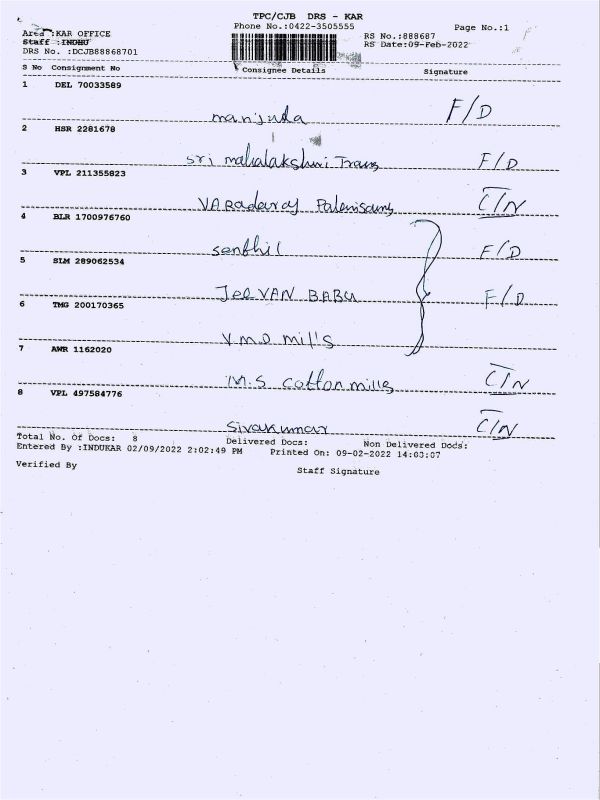 TPC/CJB DRS - KAR
Area :KAR OFFICE Phone No.:0422-3505555 Page No.:1
Staff :INDHU RS No.:888687
DRS No. :DCJB88868701 RS Date:09-Feb-2022
S No Consignment No Consignee Details Signature
1 DEL 70033589
manjula F/D
2 HSR 2281678
Sri mahalakshmi Trans F/D
3 VPL 211355823
VARadaraj Palanisamy C/N
4 BLR 1700976760
Senthil F/D
5 SLM 289062534
JeeVAN BABU F/D
6 TMG 200170365
V.M.D mills
7 AWR 1162020
M.S Cotton mills C/N
8 VPL 497584776
Sivakumar C/N
Total No. Of Docs: 8 Delivered Docs: Non Delivered Docs:
Entered By :INDUKAR 02/09/2022 2:02:49 PM Printed On: 09-02-2022 14:03:07
Verified By Staff Signature